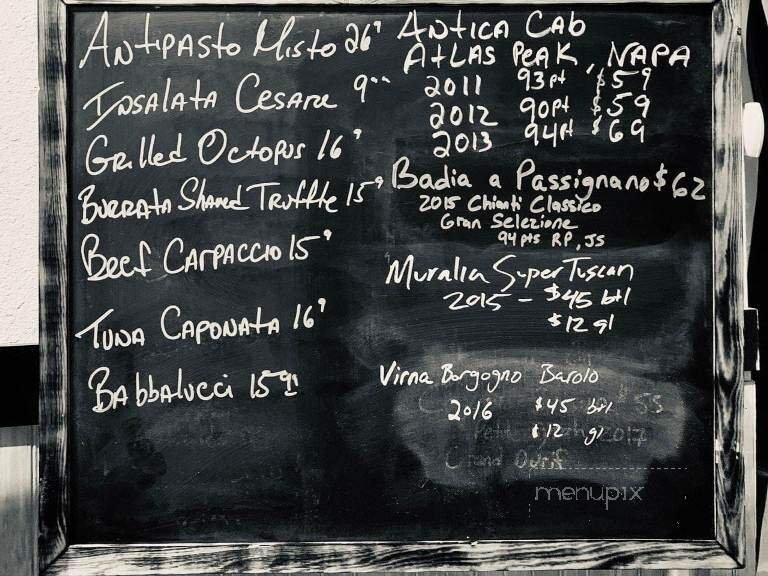 Antipasto Misto 26⁹
Insalata Cesare 9⁰⁰
Grilled Octopus 16⁹
Burrata Shaved Truffle 15⁹
Beef Carpaccio 15⁹
Tuna Caponata 16⁹
Babbalucci 15⁹
Antica Cab
Atlas Peak, Napa
2011 93pt $59
2012 90pt $59
2013 94pt $69
Badia a Passignano $62
2015 Chianti Classico
Gran Selezione
94 pts RP, JS
Muralia Super Tuscan
2015 - $45 btl
$12 gl
Virna Borgogno Barolo
2016 $45 btl
$12 gl
menupix